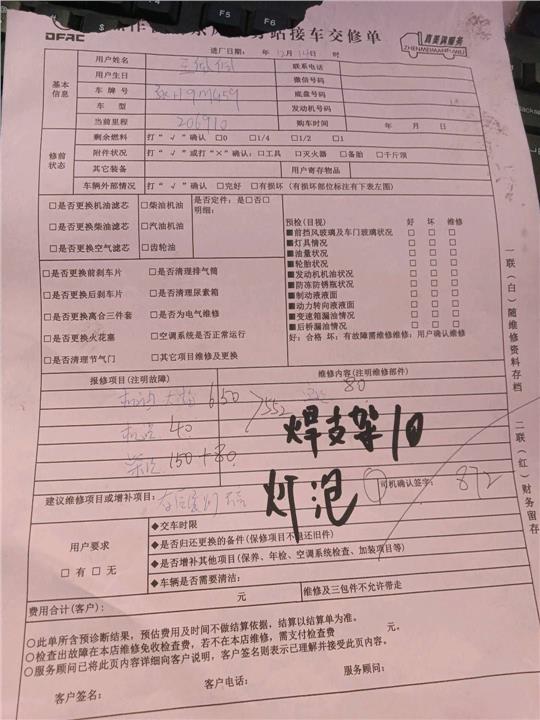 站接车交修单
DFAC
真美满服务
ZHENMEIMANFUWU
进厂日期： 年 12月 14日 时
基本信息
用户姓名
联系电话
用户生日
微信号码
车牌号
底盘号码
车型
发动机号码
当前里程 206910
购车时间 年 月 日
修前状态
剩余燃料 打“√”确认 □0 □1/4 □1/2 □1
附件状况 打“√”或打“×”确认：□工具 □灭火器 □备胎 □千斤顶
其它装备
用户寄存物品
车辆外部情况 打“√”确认 □完好 □有损坏（有损坏部位标注有下表左图）
□是否更换机油滤芯 □柴油机油
□是否更换柴油滤芯 □汽油机油
□是否更换空气滤芯 □齿轮油
是否定件：是□否□
明细：
□是否更换前刹车片 □是否清理排气筒
□是否更换后刹车片 □是否清理尿素箱
□是否更换离合三件套 □是否为电气维修
□是否更换火花塞 □空调系统是否正常运行
□是否清理节气门 □其它项目维修及更换
预检(目视) 好 坏 维修
■前挡风玻璃及车门玻璃状况 □ □ □
■灯具情况 □ □ □
■油量状况 □ □ □
■轮胎状况 □ □ □
■发动机机油状况 □ □ □
■防冻防锈瓶状况 □ □ □
■制动液液面 □ □ □
■动力转向液液面 □ □ □
■变速箱漏油情况 □ □ □
■后桥漏油情况 □ □ □
好：合格 坏：有故障需维修维修：用户确认维修
报修项目(注明故障)
维修内容(注明维修部件)
650
552
80
40
150+80
焊支架10
灯泡
司机确认签字：
872
建议维修项目或增补项目：
用户要求
□有 □无
◆交车时限
◆是否归还更换的备件(保修项目不退还旧件)
◆是否增补其他项目(保养、年检、空调系统检查、加装项目等)
◆车辆是否需要清洁：
费用合计(客户)： 元
维修及三包件不允许带走
○此单所含预诊断结果，预估费用及时间不做结算依据，结算以结算单为准。
○检查出故障在本店维修免收检查费，若不在本店维修，需支付检查费 元。
○服务顾问已将此页内容详细向客户说明，客户签名则表示已理解并接受此页内容。
客户签名： 客户电话： 服务顾问：
一联（白）随维修资料存档
二联（红）财务留存
F5
F6